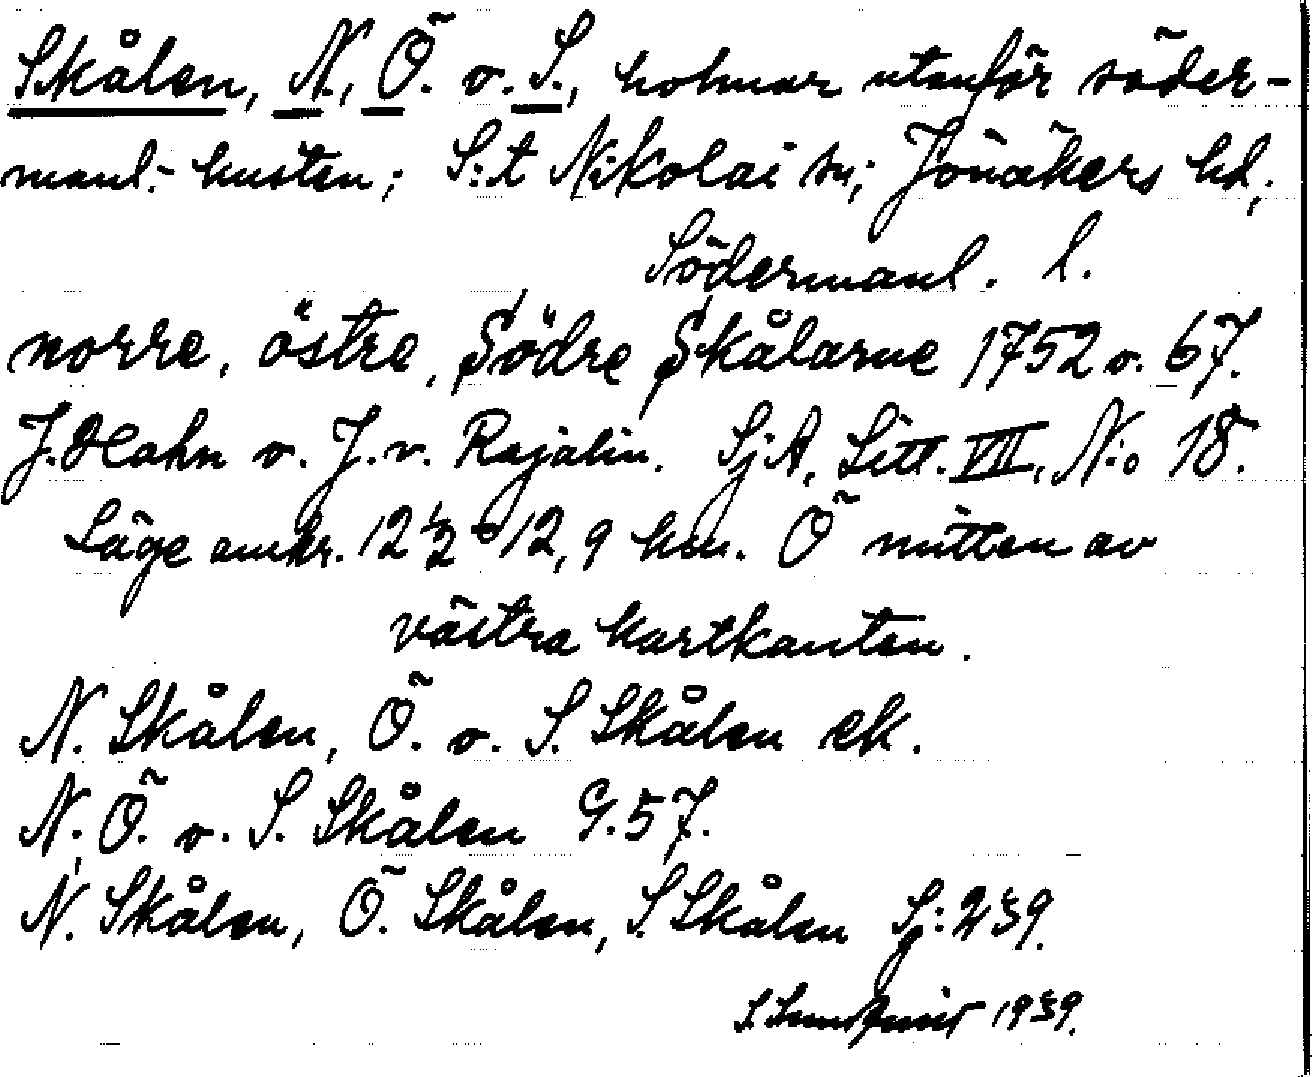 Skålen, N., Ö. o. S., holmar utanför söder-
manl.-kusten; S:t Nikolai sn; Jönåkers hd,
Södermanl. l.
norre, östre, Södre Skålarne 1752 o. 67.
J. Hahn o. J. v. Rajalin. SjA, Litt. VII, N:o 18.
Läge omkr. 12 1/2 - 12,9 km. Ö mitten av
västra kartkanten.
N. Skålen, Ö. o. S. Skålen ek.
N. Ö. o. S. Skålen G. 57.
N. Skålen, Ö. Skålen, S. Skålen Sj: 239.
1939.